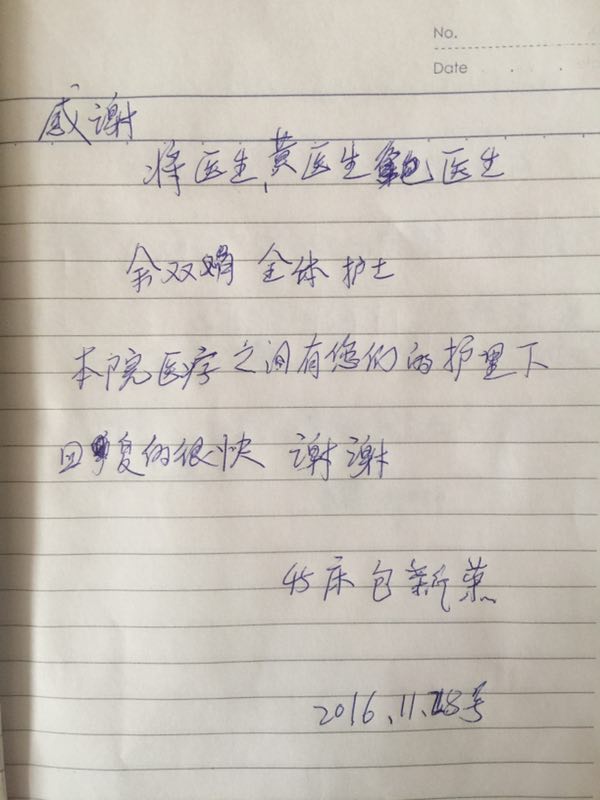 No.
Date
感谢
将医生,黄医生鲍医生
余双娟 全体护士
本院医疗之间有您们的护里下
回复的很快 谢谢
45床包新
2016.11.28号